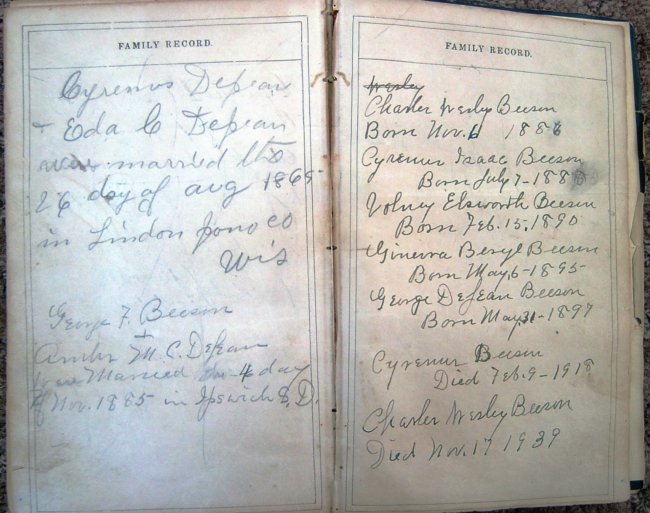 FAMILY RECORD.
Cyrenus DeJean
+ Eda C DeJean
were married the
26 day of aug 1865
in Lindon Juno co
Wis
George F. Beeson
+
M. C. DeJean
were Married the 4 day
of Nov. 1885 in Ipswich S.D.
FAMILY RECORD.
Wesley
Charles Wesley Beeson
Born Nov. 6 1886
Cyrenus Isaac Beeson
Born July 7-188
Volney Elsworth Beeson
Born Feb. 15, 1890
Ginevra Beryl Beeson
Born May, 6-1895
George DeJean Beeson
Born May, 31-1897
Cyrenus Beeson
Died Feb. 9-1918
Charles Wesley Beeson
Died Nov. 17 1939